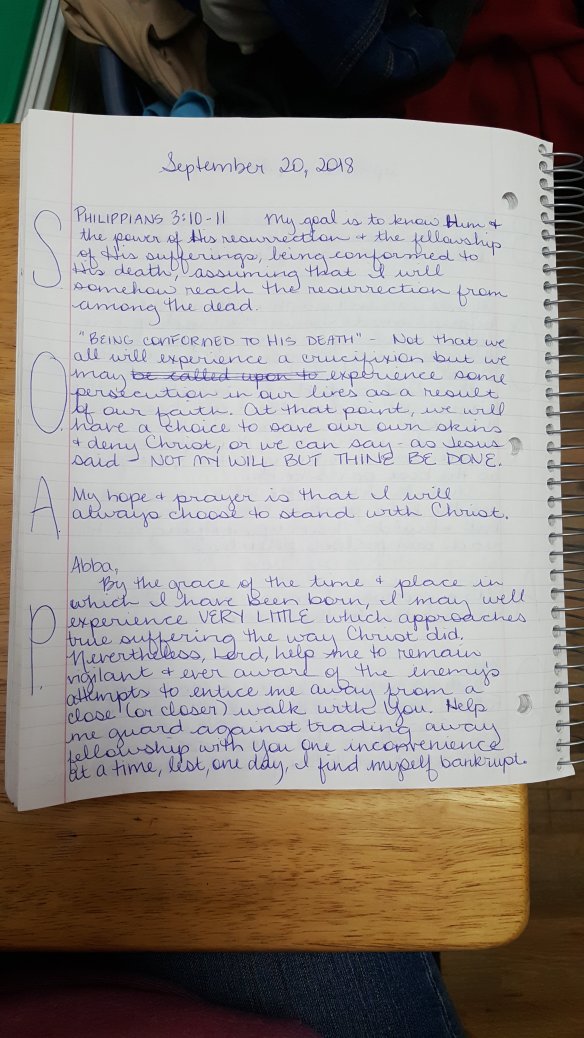 September 20, 2018
S
PHILIPPIANS 3:10-11 My goal is to know Him &
the power of His resurrection & the fellowship
of His sufferings, being conformed to
His death, assuming that I will
somehow reach the resurrection from
among the dead.
O
"BEING CONFORMED TO HIS DEATH" - Not that we
all will experience a crucifixion but we
may be called upon to experience some
persecution in our lives as a result
of our faith. At that point, we will
have a choice to save our own skins
& deny Christ, or we can say - as Jesus
said - NOT MY WILL BUT THINE BE DONE.
A
My hope & prayer is that I will
always choose to stand with Christ.
P.
Abba,
By the grace of the time & place in
which I have been born, I may well
experience VERY LITTLE which approaches
true suffering the way Christ did.
Nevertheless, Lord, help me to remain
vigilant & ever aware of the enemy's
attempts to entice me away from a
close (or closer) walk with You. Help
me guard against trading away
fellowship with You one inconvenience
at a time, lest, one day, I find myself bankrupt.